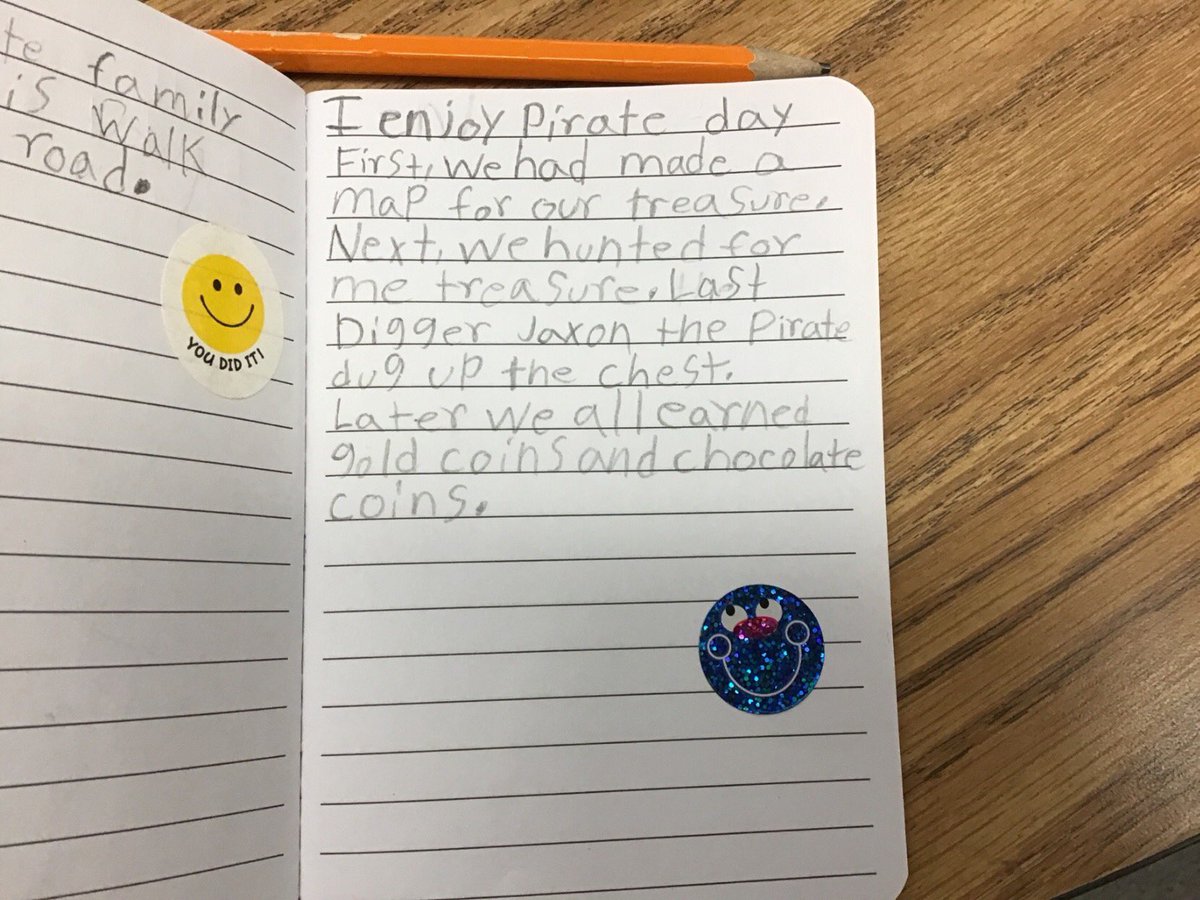 te family
is Walk
road.
YOU DID IT!
I enjoy Pirate day
First, we had made a
map for our treasure.
Next, we hunted for
me treasure. Last
Digger Jaxon the Pirate
dug up the chest.
Later we all earned
gold coins and chocolate
coins.